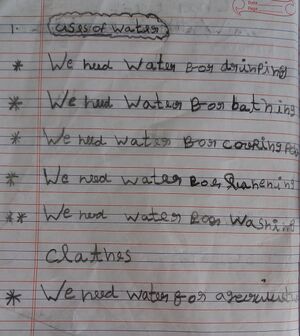 Date
Page
1. uses of water
* We need water for drinping
* We need water for bathing
* We need water for cooking
* We need water for
** We need water for Washing
clathes
* We need water for